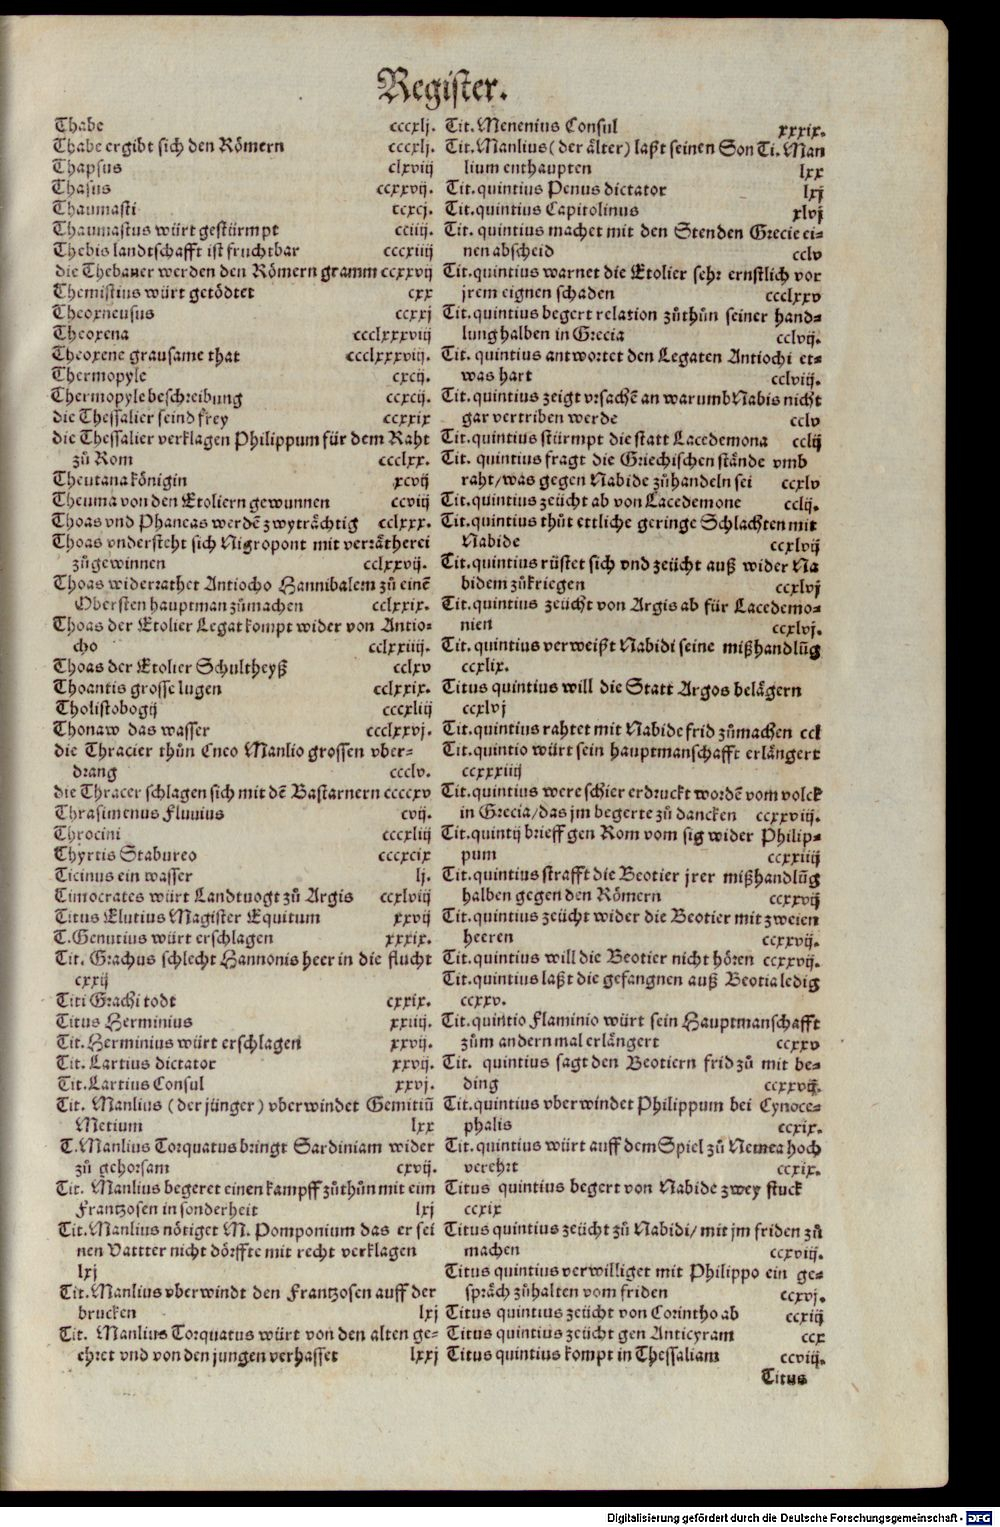 Register.
Thabe cccxlj.
Thabe ergibt sich den Römern cccxlj.
Thapsus clxviij
Thasus ccxxvij.
Thaumasti ccxcj.
Thaumastus würt gestürmpt cciiij.
Thebis landtschafft ist fruchtbar cccxiiij
die Thebaner werden den Römern gramm ccxxvij
Themistius würt getödtet cxx
Theoxneusus ccxxj
Theoxena ccclxxxviij
Theoxene grausame that ccclxxxviij.
Thermopyle cxcij.
Thermopyle beschreibung ccxcij.
die Thessalier seind frey ccxxix
die Thessalier verklagen Philippum für dem Raht
zů Rom ccclxx.
Theutana königin xcvij
Theuma von den Etoliern gewunnen ccviij
Thoas vnd Phaneas werdē zwyträchtig cclxxx.
Thoas vndersteht sich Nigropont mit verrätherei
zůgewinnen cclxxvij.
Thoas widerrathet Antiocho Hannibalem zů einē
Obersten hauptman zůmachen cclxxix.
Thoas der Etolier Legat kompt wider von Antio-
cho cclxxiiij.
Thoas der Etolier Schultheyß cclxv
Thoantis grosse lugen cclxxix.
Tholistobogij cccxliij
Thonaw das wasser ccclxxvj.
die Thracier thůn Cneo Manlio grossen vber-
drang cccclv.
die Thracer schlagen sich mit dē Bastarnern ccccxv
Thrasimenus Fluuius cvij.
Throcini cccxliij
Thyrtis Stabureo cccxcix
Ticinus ein wasser lj.
Timocrates würt Landtuogt zů Argis ccxlviij
Titus Elutius Magister Equitum xxvij
T. Genutius würt erschlagen xxxix.
Tit. Grachus schlecht Hannonis heer in die flucht
cxxij
Titi Grachi todt cxxix.
Titus Herminius xxiiij.
Tit. Herminius würt erschlagen xxvij.
Tit. Lartius dictator xxvij.
Tit. Lartius Consul xxvj.
Tit. Manlius (der jünger) vberwindet Gemitiū
Metium lxx
T. Manlius Torquatus bringt Sardiniam wider
zů gehorsam cxvij.
Tit. Manlius begeret einen kampff zůthůn mit eim
Frantzosen in sonderheit lxj
Tit. Manlius nötiget M. Pomponium das er sei
nen Vattter nicht dörffte mit recht verklagen
lxj
Tit. Manlius vberwindt den Frantzosen auff der
brucken lxj
Tit. Manlius Torquatus würt von den alten ge-
ehret vnd von den jungen verhasset lxxj
Tit. Menenius Consul xxxix.
Tit. Manlius (der älter) laßt seinen Son Ti. Man
lium enthaupten lxx
Tit. quintius Penus dictator lxj
Tit. quintius Capitolinus xlvj
Tit. quintius machet mit den Stenden Grecie ei-
nen abscheid cclv
Tit. quintius warnet die Etolier sehr ernstlich vor
jrem eignen schaden ccclxxv
Tit. quintius begert relation zůthůn seiner hand-
lung halben in Grecia cclvij.
Tit. quintius antwortet den Legaten Antiochi et-
was hart cclviij.
Tit. quintius zeigt vrsachē an warumb Nabis nicht
gar vertriben werde cclv
Tit. quintius stürmpt die statt Lacedemona cclij
Tit. quintius fragt die Griechischen stände vmb
raht/was gegen Nabide zůhandeln sei ccxlv
Tit. quintius zeücht ab von Lacedemone cclij.
Tit. quintius thůt ettliche geringe Schlachten mit
Nabide ccxlvij
Tit. quintius rüstet sich vnd zeücht auß wider Na
bidem zůkriegen ccxlvj
Tit. quintius zeücht von Argis ab für Lacedemo-
nien ccxlvj.
Tit. quintius verweißt Nabidi seine mißhandlūg
ccxlix.
Titus quintius will die Statt Argos belägern
ccxlvj
Tit. quintius rahtet mit Nabide frid zůmachen ccl
Tit. quintio würt sein hauptmanschafft erlängert
ccxxxiiij
Tit. quintius were schier erdruckt wordē vom volck
in Grecia/das jm begerte zů dancken ccxxviij.
Tit. quintij brieff gen Rom vom sig wider Philip-
pum ccxxiiij
Tit. quintius strafft die Beotier jrer mißhandlūg
halben gegen den Römern ccxxvij
Tit. quintius zeücht wider die Beotier mit zweien
heeren ccxxvij.
Tit. quintius will die Beotier nicht hören ccxxvij.
Tit. quintius laßt die gefangnen auß Beotia ledig
ccxxv.
Tit. quintio Flaminio würt sein Hauptmanschafft
zům andern mal erlängert ccxxv
Tit. quintius sagt den Beotiern frid zů mit be-
ding ccxxvij.
Tit. quintius vberwindet Philippum bei Cynoce-
phalis ccxix.
Tit. quintius würt auff dem Spiel zů Nemea hoch
verehrt ccxix.
Titus quintius begert von Nabide zwey stuck
ccxix
Titus quintius zeücht zů Nabidi/mit jm friden zů
machen ccxviij.
Titus quintius verwilliget mit Philippo ein ge-
spräch zůhalten vom friden ccxvj.
Titus quintius zeücht von Corintho ab ccxiij
Titus quintius zeücht gen Anticyram ccx
Titus quintius kompt in Thessaliam ccviij.
Titus
Digitalisierung gefördert durch die Deutsche Forschungsgemeinschaft - DFG